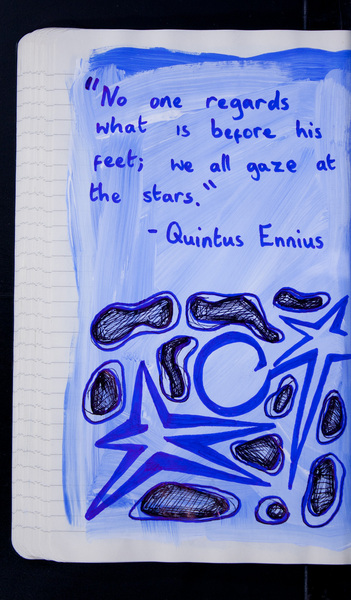 "No one regards
what is before his
feet; we all gaze at
the stars."
- Quintus Ennius